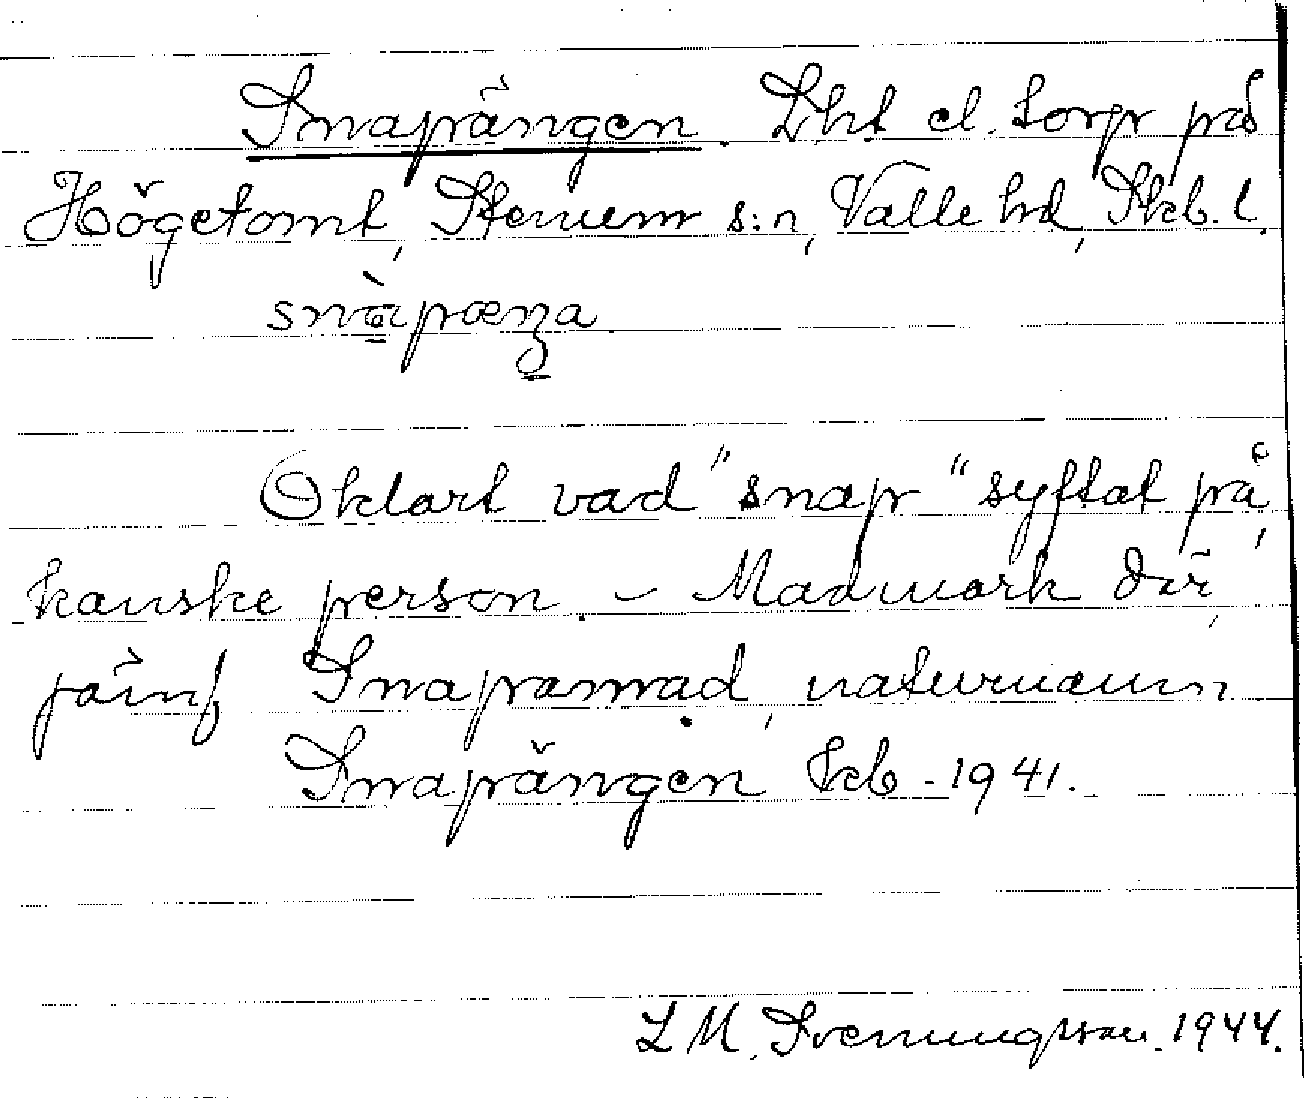 Snapängen. Lht el. torp på
Högetomt, Stenum s:n, Valle hd, Skb. l.
snàpæŋa
Oklart vad "snap" syftat på,
kanske person. – Madmark där,
jämf Snapamad, naturnamn
Snapängen Skb - 1941.
L M. Svenungsson. 1944.